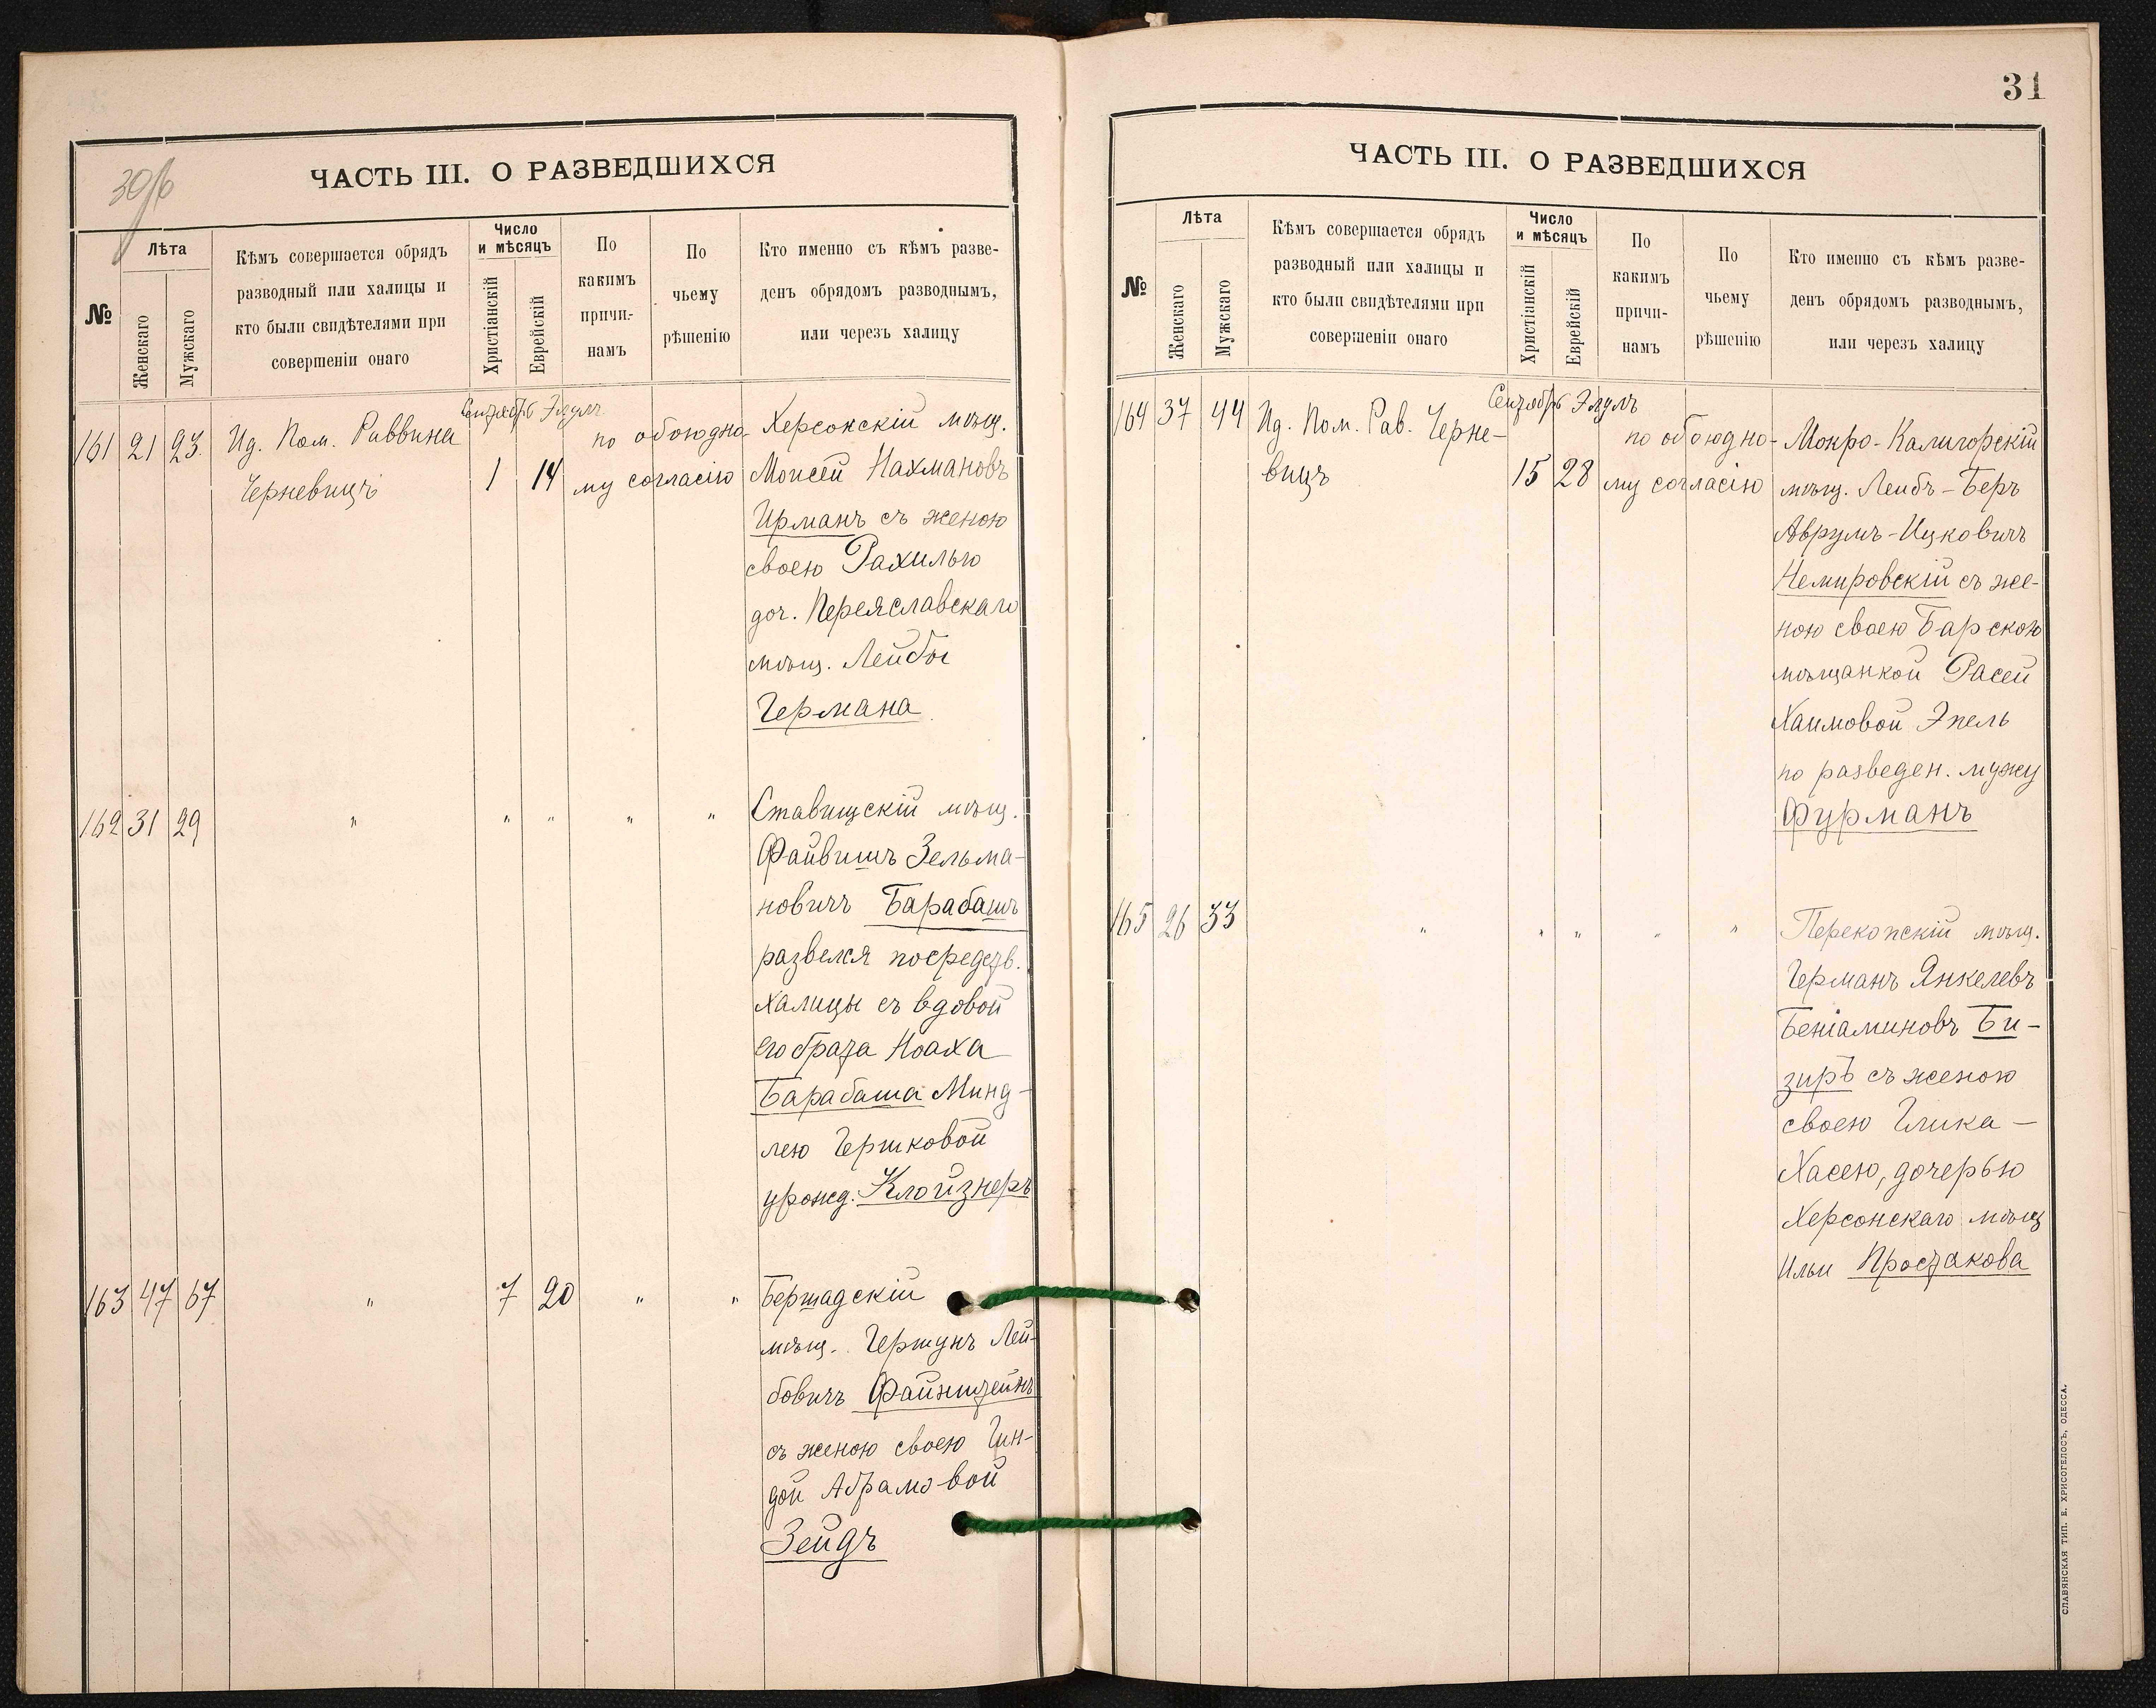 30 об
ЧАСТЬ III. О РАЗВЕДШИХСЯ
№
Лѣта
Женскаго
Мужскаго
Кѣмъ совершается обрядъ
разводный или халицы и
кто были свидѣтелями при
совершеніи онаго
Число
и мѣсяцъ
Христіанскій
Еврейскій
По
какимъ
причи-
намъ
По
чьему
рѣшенію
Кто именно съ кѣмъ разве-
денъ обрядомъ разводнымъ,
или черезъ халицу
Сентябрь Элулъ
161 21 23. Ид. Пом. Раввина
Черневицъ
1 14
по обоюдно-
му согласію
Херсонскій мѣщ.
Моисей Нахмановъ
Ирманъ съ женою
своею Рахилью
доч. Переяславскаго
мѣщ. Лейбы
Германа
162 31 29 " " " " "
Ставищскій мѣщ.
Файвишъ Зельма-
новичъ Барабашъ
развелся посредств.
халицы съ вдовой
его брата Ноаха
Барабаша Минд-
лею Гершковой
урожд. Клойзнеръ
163 47 67 " 7 20 " "
Бершадскій
мѣщ. Гершунъ Лей-
бовичъ Файнштейнъ
съ женою своею Гин-
дой Абрамовой
Зейдъ
31
ЧАСТЬ III. О РАЗВЕДШИХСЯ
№
Лѣта
Женскаго
Мужскаго
Кѣмъ совершается обрядъ
разводный или халицы и
кто были свидѣтелями при
совершеніи онаго
Число
и мѣсяцъ
Христіанскій
Еврейскій
По
какимъ
причи-
намъ
По
чьему
рѣшенію
Кто именно съ кѣмъ разве-
денъ обрядомъ разводнымъ,
или черезъ халицу
Сентябрь Элулъ
164 37 44 Ид. Пом. Рав. Черне-
вицъ
15 28
по обоюдно-
му согласію
Мокро-Калигорскій
мѣщ. Лейбъ-Беръ
Аврумъ-Ицковичъ
Немировскій съ же-
ною своею Барской
мѣщанкой Расей
Хаимовой Эпель
по разведен. мужу
Фурманъ
165 26 33 " " " " "
Перекопскій мѣщ.
Германъ Янкелевъ
Беніаминовъ Би-
зиръ съ женою
своею Гликa-
Хасею, дочерью
Херсонскаго мѣщ
Ильи Простакова
СЛАВЯНСКАЯ ТИП. Е. ХРИСОГЕЛОСЪ, ОДЕССА.